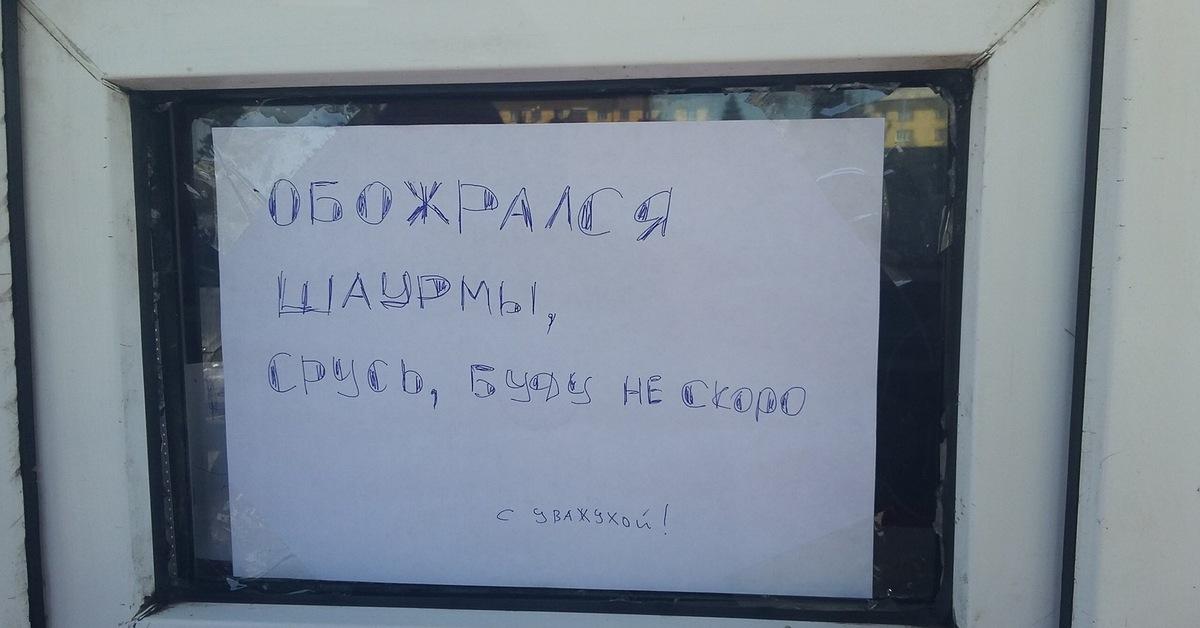 ОБОЖРАЛСЯ
ШАУРМЫ,
СРУСЬ, БУДУ НЕ СКОРО
С УВАЖУХОЙ!